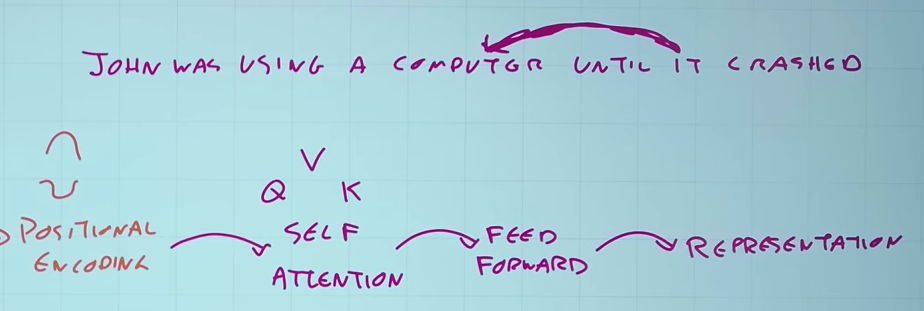 JOHN WAS USING A COMPUTER UNTIL IT CRASHED
V
Q K
POSITIONAL
ENCODING
SELF
ATTENTION
FEED
FORWARD
REPRESENTATION